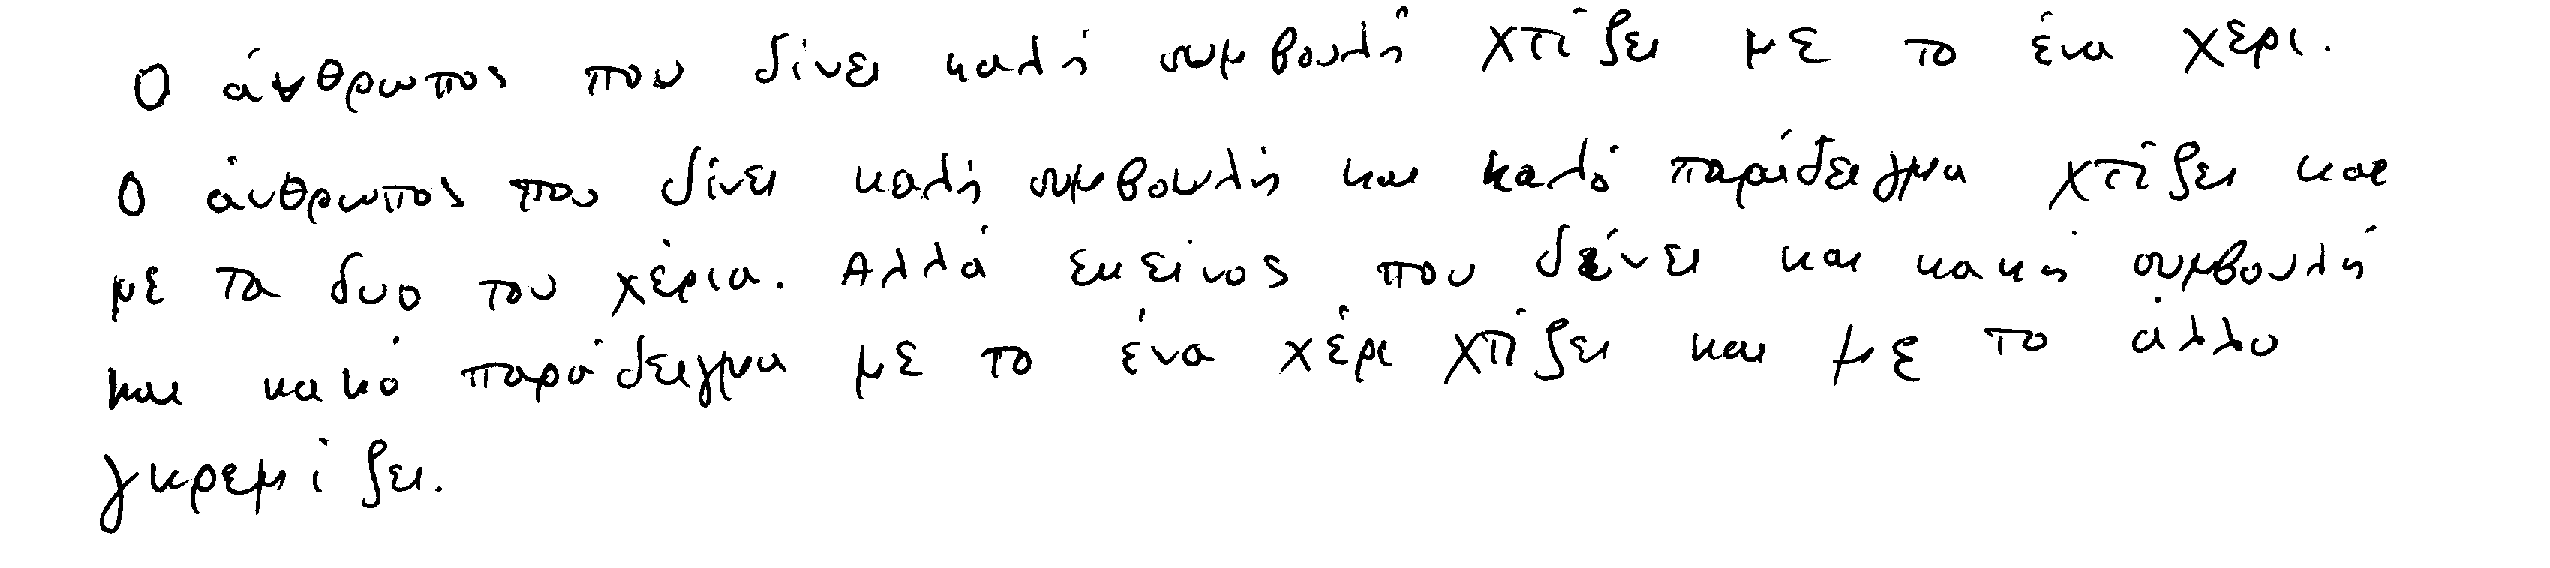 Ο άνθρωπος που δίνει καλή συμβουλή χτίζει με το ένα χέρι.
Ο άνθρωπος που δίνει καλή συμβουλή και καλό παράδειγμα χτίζει και
με τα δυο του χέρια. Αλλά εκείνος που δίνει και κακή συμβουλή
και κακό παράδειγμα με το ένα χέρι χτίζει και με το άλλο
γκρεμίζει.